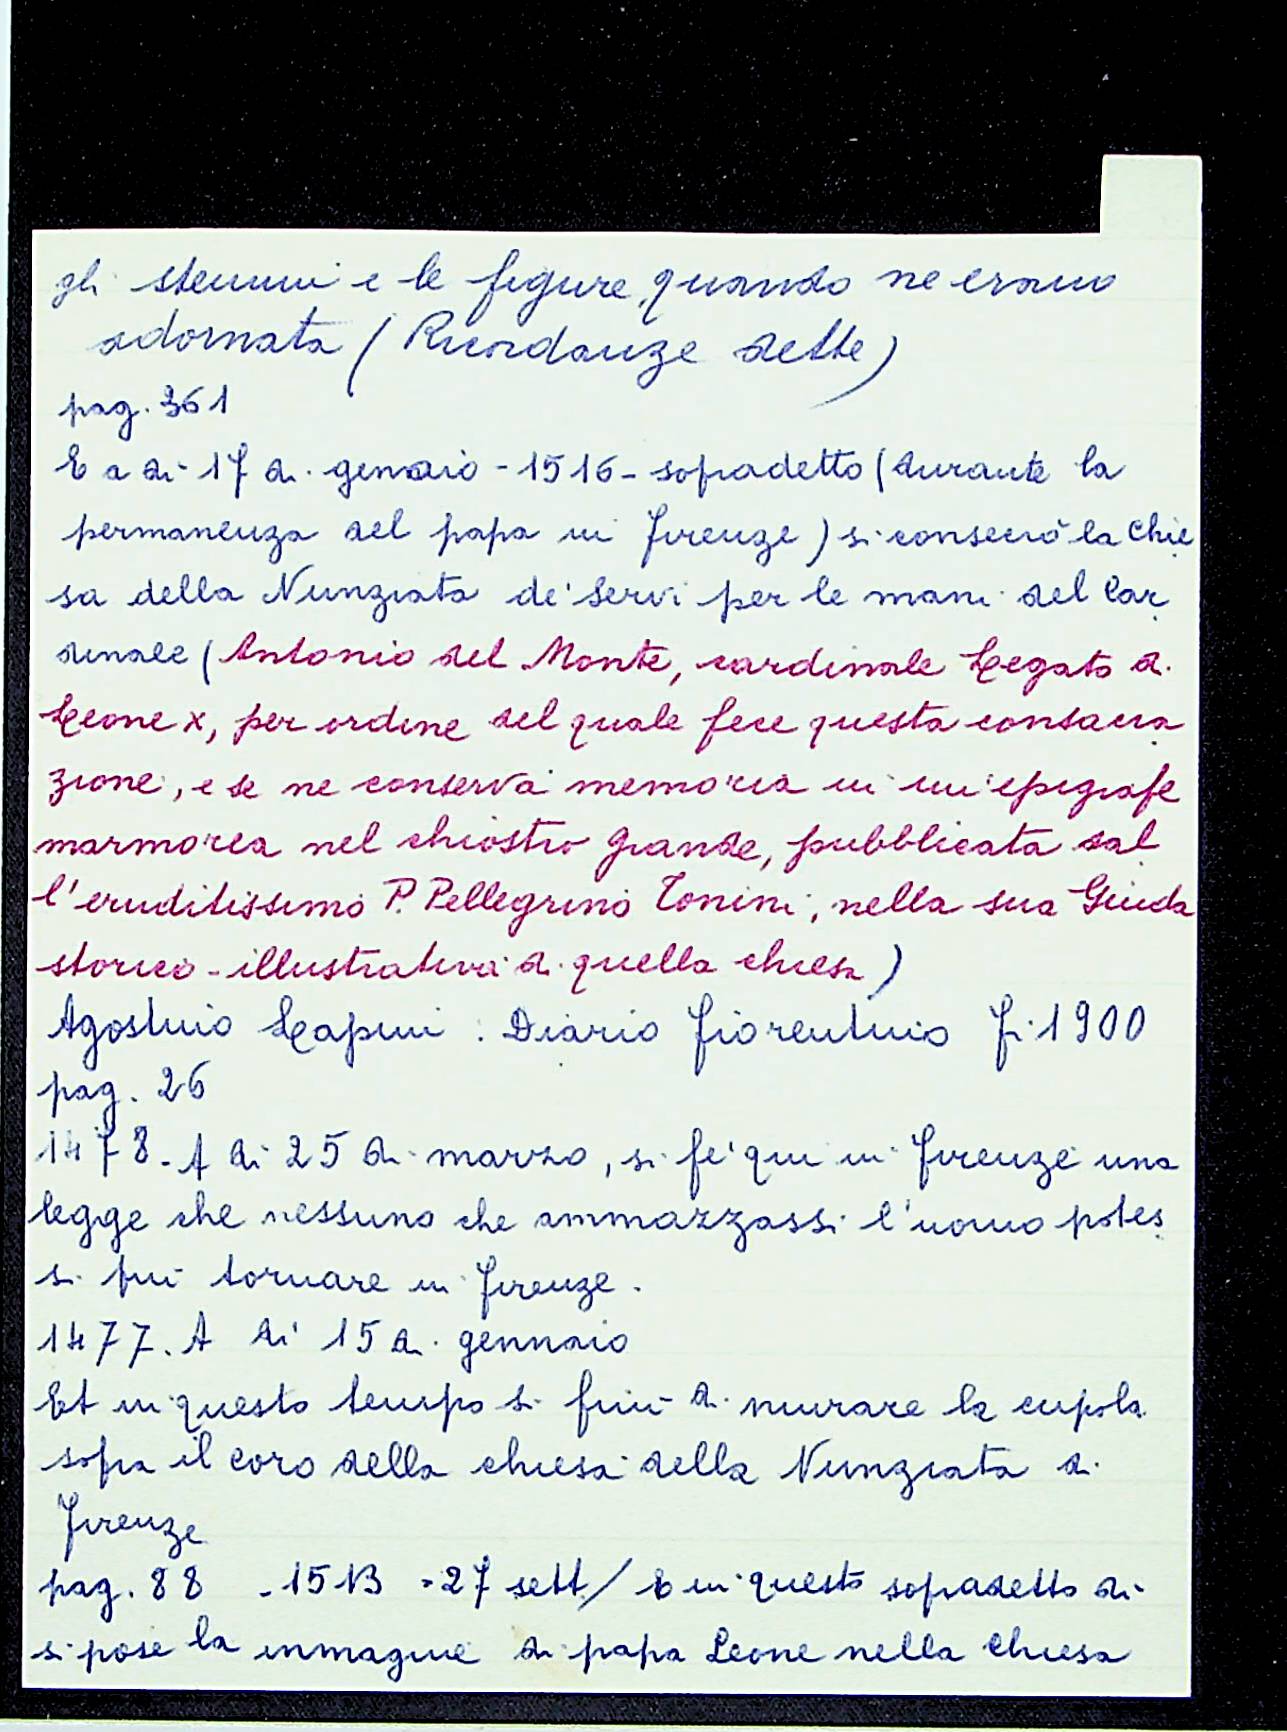 gli stemmi e le figure, quando ne erano
adornata (Ricordanze dette)
pag. 361
E a dì 17 di gennaio - 1516 - sopradetto (durante la
permanenza del papa in Firenze) si consecrò la Chie
sa della Nunziata de' Servi per le mani del Car
dinale (Antonio del Monte, cardinale Legato di
Leone X, per ordine del quale fece questa consacra
zione, e se ne conserva memoria in un'epigrafe
marmorea nel chiostro grande, pubblicata dal
l'eruditissimo P. Pellegrino Tonini, nella sua Guida
storico-illustrativa di quella chiesa)
Agostino Lapini: Diario fiorentino Fi. 1900
pag. 26
1478. A dì 25 di marzo, si fe' qui in Firenze una
legge che nessuno che ammazzassi l'uomo potes
si più tornare in Firenze.
1477. A dì 15 di gennaio
Et in questo tempo si finì di murare la cupola
sopra il coro della chiesa della Nunziata di
Firenze
pag. 88 - 1513 - 27 sett / E in questo sopradetto dì
si pose la immagine di papa Leone nella Chiesa